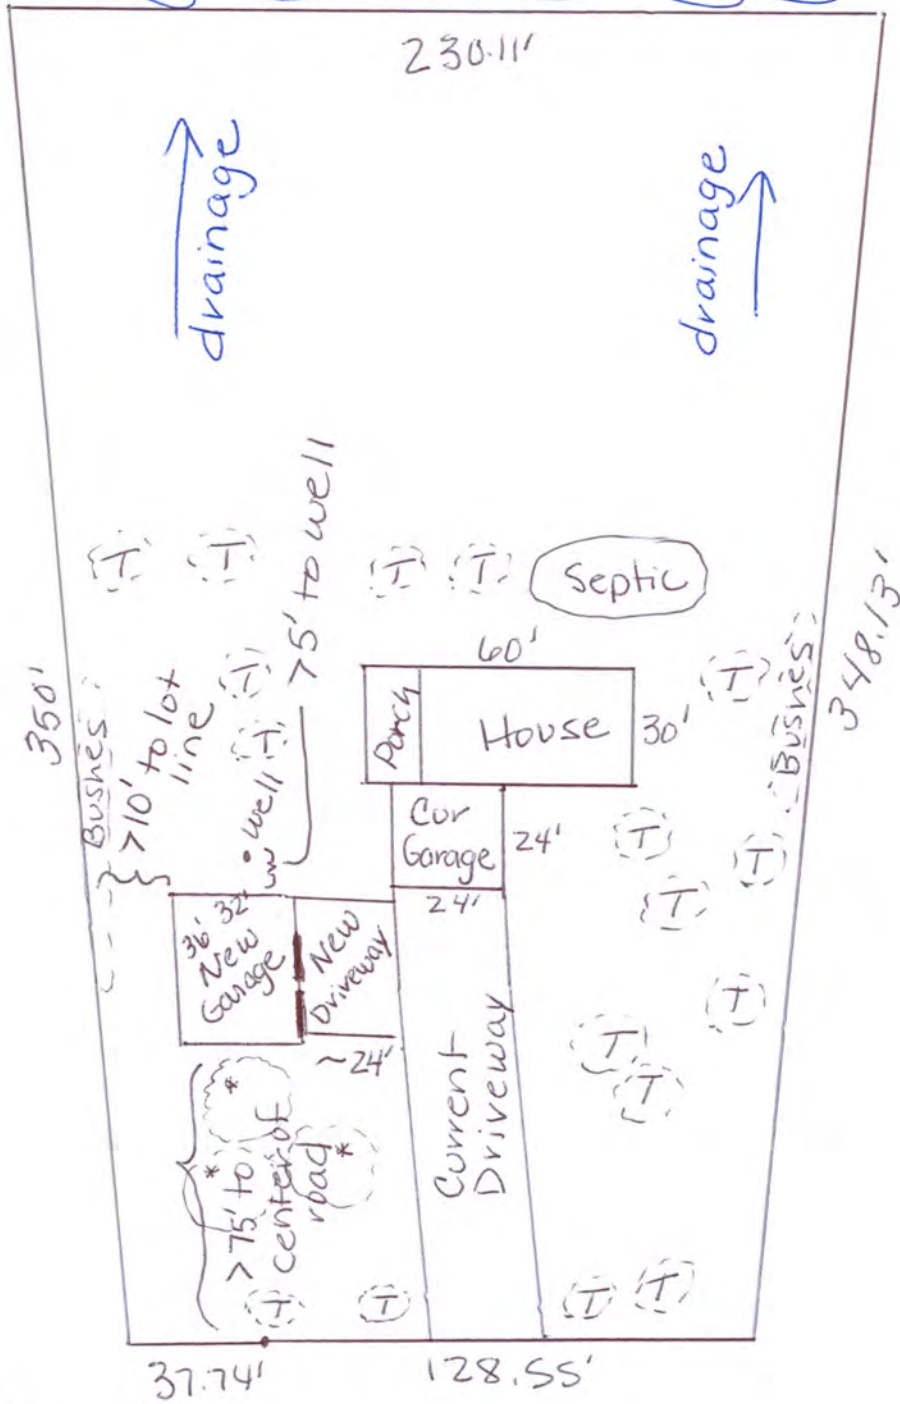 230.11'
drainage
drainage
>5' to well
T
T
T
T
Septic
350'
348.13'
Bushes
>10' to lot
line
T
T
well
60'
Porch
House
30'
T
Bushes
Cur
Garage
24'
24'
T
T
T
36' 32'
New
Garage
New
Driveway
~24'
T
T
T
*
*
*
>75' to
center of
road
Current
Driveway
T
T
T
T
37.74'
128.55'